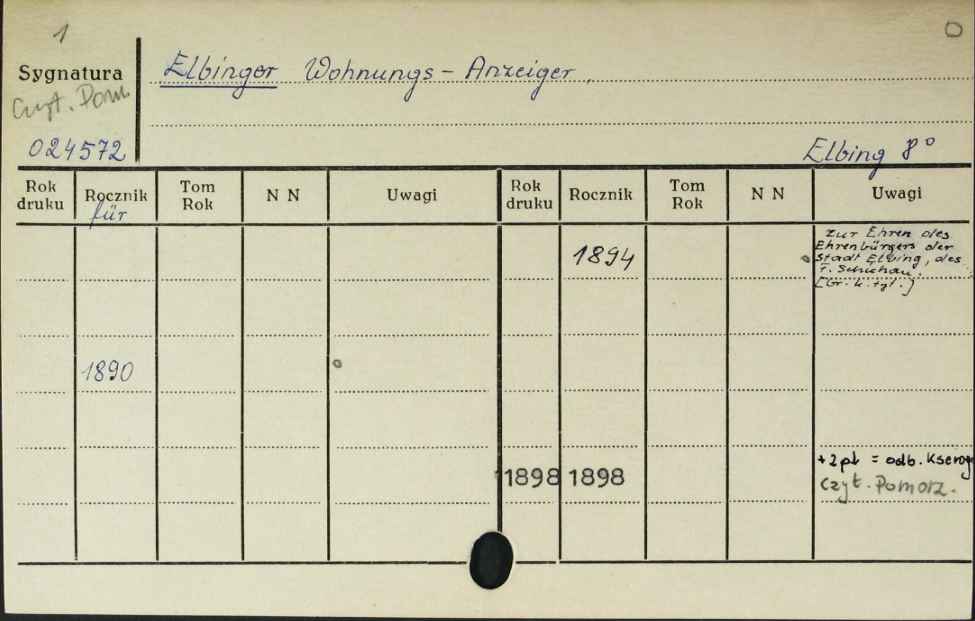 1
Sygnatura
Elbinger Wohnungs - Anzeiger.
Czyt. Pom
024572
Elbing 8°
Rok druku
Rocznik
Tom Rok
N N
Uwagi
Rok druku
Rocznik
Tom Rok
N N
Uwagi
für
1894
zur Ehren des
Ehrenbürgers der
Stadt Elbing, des
F. Schichau.
1890
1898
1898
+2pl = odb. Kserog
Czyt. Pomorz.